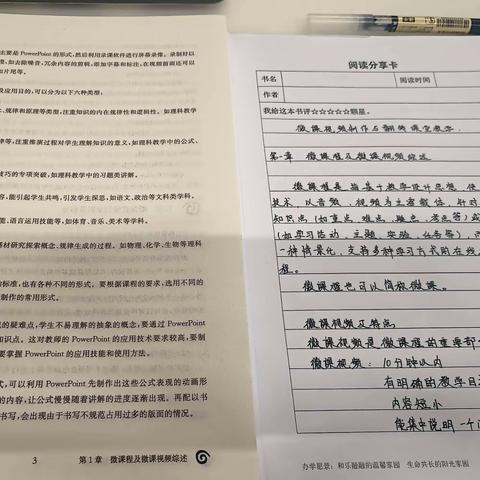 主要是 PowerPoint 的形式,然后利用录课软件进行屏幕录像。录制好以
如去除噪音,冗余内容的剪辑,添加字幕和标注,在视频前面还可以
和片尾等。
及应用目的,可以分为以下六种类型:
、规律和原理等类型,注重知识的内在规律性和逻辑性。如理科教学
律等,注重推演过程对学生理解知识的意义,如理科教学中的公式、
技巧的专项突破,如理科教学中的习题类讲解。
容,能引起学生共鸣,引发学生深思,如语文、政治等文科类学科。
能、语言运用技能等,如体育、音乐、美术等学科。
器材研究探索概念、规律生成的过程。如物理、化学、生物等理科
的标准,也有各种不同的形式。要根据课程的要求,选用不同的
制作的常用形式。
的疑难点,学生不易理解的抽象的概念,要通过 PowerPoint
知识点。这对教师的 PowerPoint 的应用技术要求较高,要制
要掌握 PowerPoint 的应用技能和使用方法。
式,可以利用 PowerPoint 先制作出这些公式表现的动画形
的内容,让公式慢慢随着讲解的进度逐渐出现。再配以书
书写,会出现由于书写不规范占用过多的版面的情况。
3 第1章 微课程及微课视频综述
阅读分享卡
书名 阅读时间
作者
我给这本书评☆☆☆☆☆颗星。
微课视频制作与翻转课堂教学
第一章 微课程及微课视频综述
微课程是指基于教学设计思想,使
技术,以音频、视频为主要载体,针对
知识点(如重点、难点、疑点、考点等)或
(如学习活动、主题、实验、任务等)
一种情景化、支持多种学习方式的在线
程。
微课程也可以简称微课。
微课视频及特点
微课视频是微课程的重要部
微课视频:10分钟以内
有明确的教学目
内容短小
能集中说明一个问
办学愿景:和乐融融的温馨家园 生命共长的阳光家园